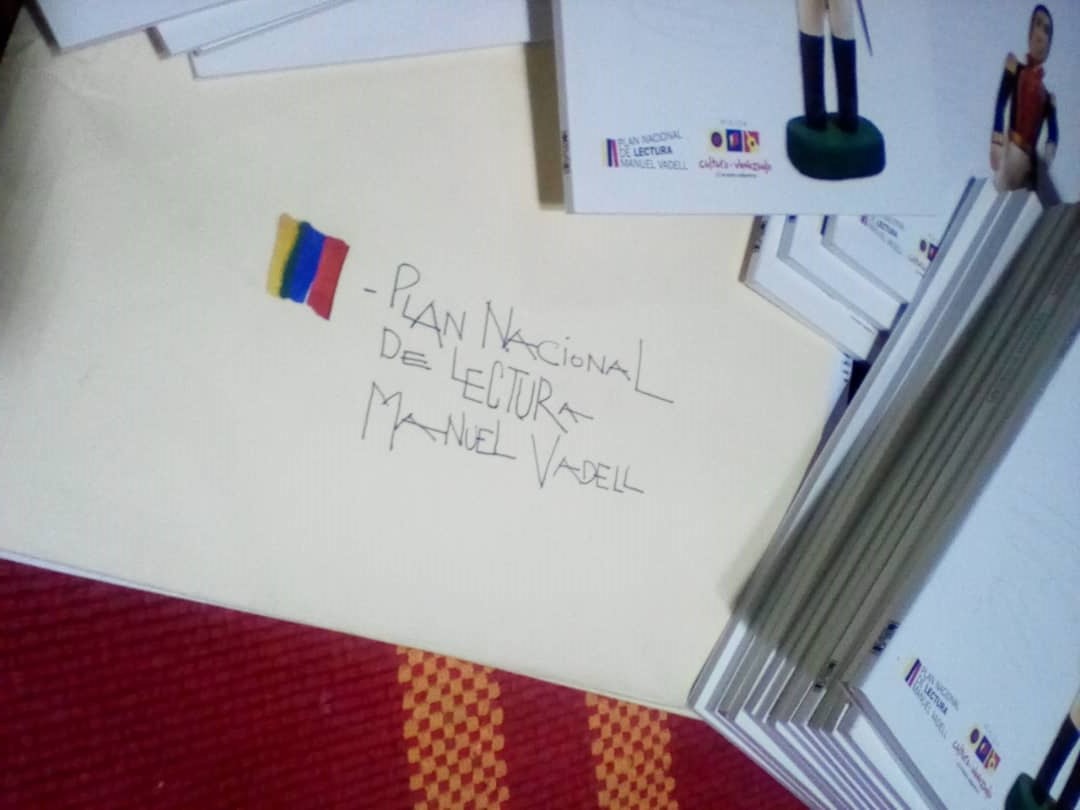 - PLAN NACIONAL
DE LECTURA
MANUEL VADELL
PLAN NACIONAL
DE LECTURA
MANUEL VADELL
cultura-venezuela
LECTURA
PLAN NACIONAL
DE LECTURA
MANUEL VADELL